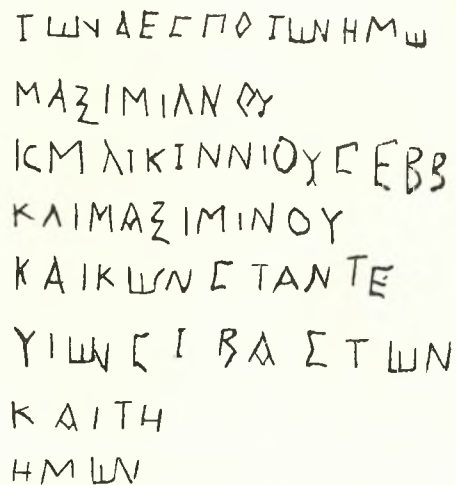 ΤΩΝΔΕСΠΟΤΩΝΗΜω
ΜΑΞΙΜΙΛΝΟΥ
ΙCΜΛΙΚΙΝΝΙΟΥСΕΒΒ
ΚΛΙΜΑΞΙΜΙΝΟΥ
ΚΑΙΚΩΝСΤΑΝΤΕ
ΥΙΩΝСΙΒΑΣΤΩΝ
ΚΑΙΤΗ
ΗΜΩΝ